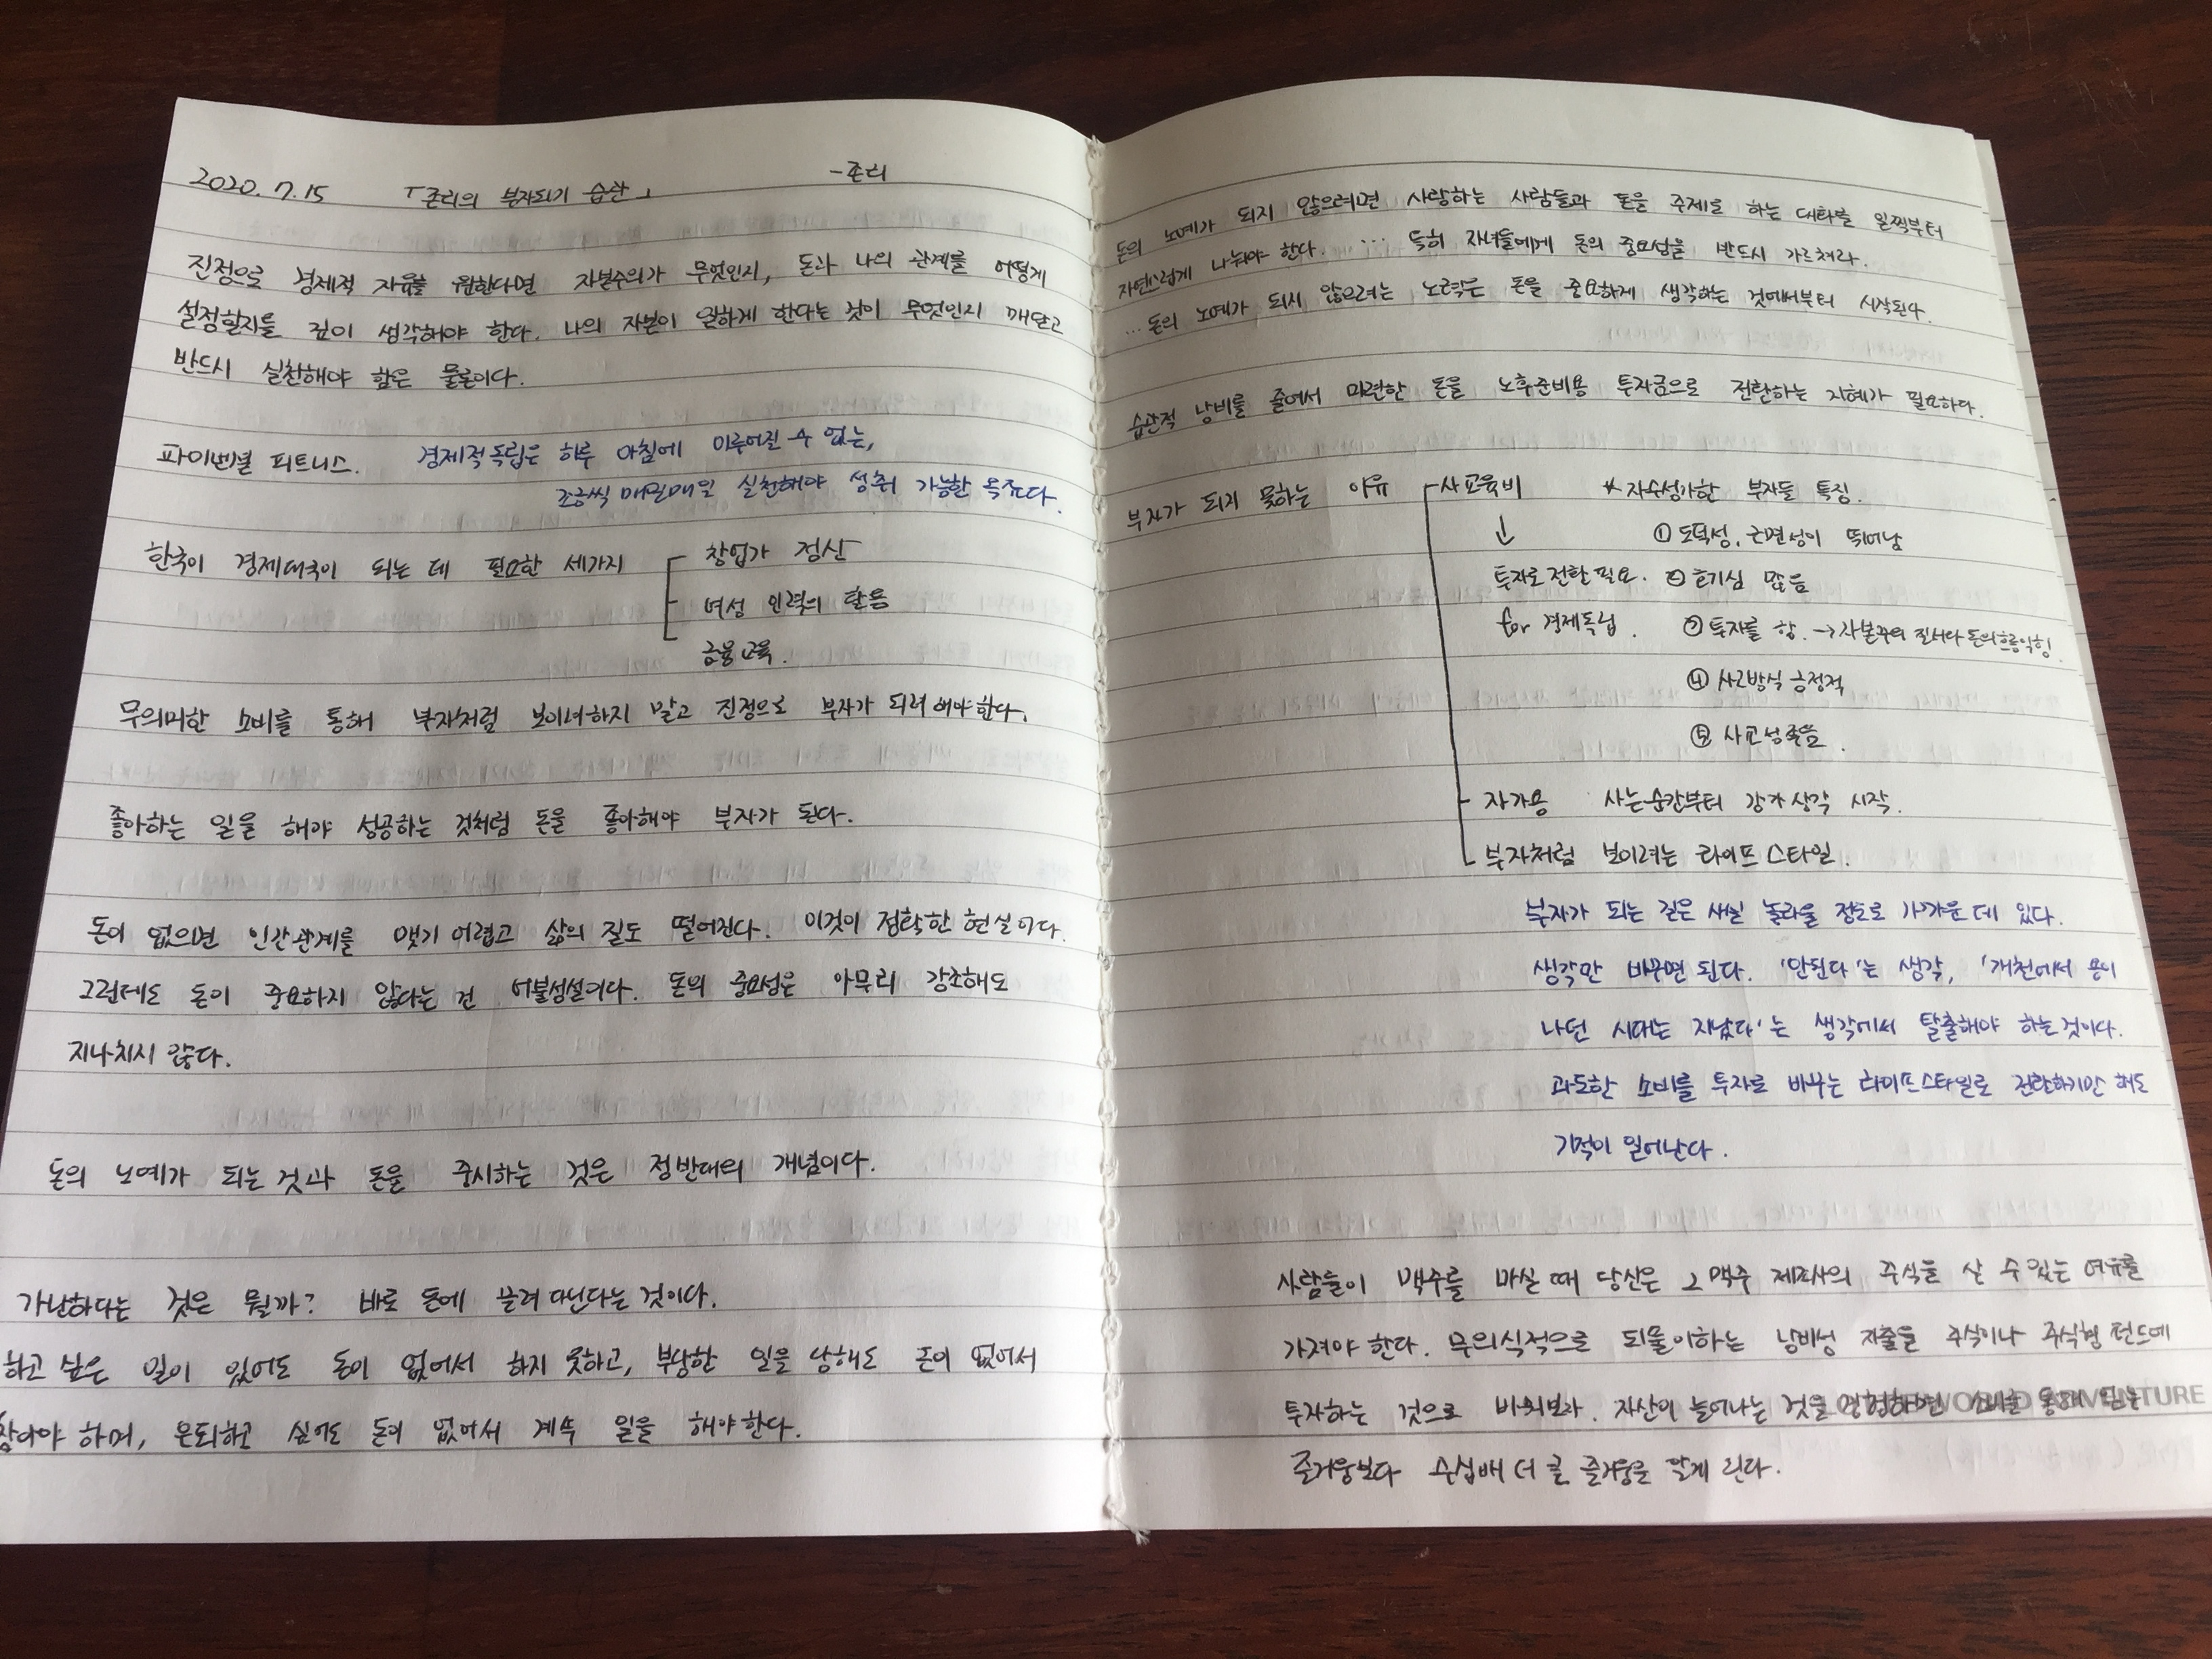 2020. 7. 15 「존리의 부자되기 습관」 -존리
진정으로 경제적 자유를 원한다면 자본주의가 무엇인지, 돈과 나의 관계를 어떻게
설정할지를 깊이 생각해야 한다. 나의 자본이 일하게 한다는 것이 무엇인지 깨닫고
반드시 실천해야 함은 물론이다.
파이낸셜 피트니스. 경제적 독립은 하루 아침에 이루어질 수 없는,
조금씩 매일매일 실천해야 성취 가능한 목표다.
한국이 경제대국이 되는 데 필요한 세가지
창업가 정신
여성 인력의 활용
금융교육.
무의미한 소비를 통해 부자처럼 보이려하지 말고 진정으로 부자가 되려 해야한다.
좋아하는 일을 해야 성공하는 것처럼 돈을 좋아해야 부자가 된다.
돈이 없으면 인간관계를 맺기 어렵고 삶의 질도 떨어진다. 이것이 정확한 현실이다.
그런데도 돈이 중요하지 않다는 건 어불성설이다. 돈의 중요성은 아무리 강조해도
지나치지 않다.
돈의 노예가 되는 것과 돈을 중시하는 것은 정반대의 개념이다.
가난하다는 것은 뭘까? 바로 돈에 끌려 다닌다는 것이다.
하고 싶은 일이 있어도 돈이 없어서 하지 못하고, 부당한 일을 당해도 돈이 없어서
참아야 하며, 은퇴하고 싶어도 돈이 없어서 계속 일을 해야한다.
돈의 노예가 되지 않으려면 사랑하는 사람들과 돈을 주제로 하는 대화를 일찍부터
자연스럽게 나눠야 한다. … 특히 자녀들에게 돈의 중요성을 반드시 가르쳐라.
… 돈의 노예가 되지 않으려는 노력은 돈을 중요하게 생각하는 것에서부터 시작된다.
습관적 낭비를 줄여서 마련한 돈을 노후준비용 투자금으로 전환하는 지혜가 필요하다.
부자가 되지 못하는 이유
사교육비
↓
투자로 전환 필요.
for 경제독립.
* 자수성가한 부자들 특징.
① 도덕성, 근면성이 뛰어남
② 호기심 많음
③ 투자를 함. → 자본주의 질서와 돈의흐름익힘.
④ 사고방식 긍정적
⑤ 사교성좋음.
자가용 사는순간부터 감가상각 시작.
부자처럼 보이려는 라이프 스타일.
부자가 되는 길은 사실 놀라울 정도로 가까운 데 있다.
생각만 바꾸면 된다. '안된다'는 생각, '개천에서 용이
나던 시대는 지났다'는 생각에서 탈출해야 하는것이다.
과도한 소비를 투자로 바꾸는 라이프스타일로 전환하기만 해도
기적이 일어난다.
사람들이 맥주를 마실 때 당신은 그 맥주 제조사의 주식을 살 수 있는 여유를
가져야 한다. 무의식적으로 되풀이하는 낭비성 지출을 주식이나 주식형 펀드에
투자하는 것으로 바꿔보라. 자산이 늘어나는 것을 경험하면 소비를 통해 얻는
즐거움보다 수십배 더 큰 즐거움을 알게 된다.
WORLD ADVENTURE